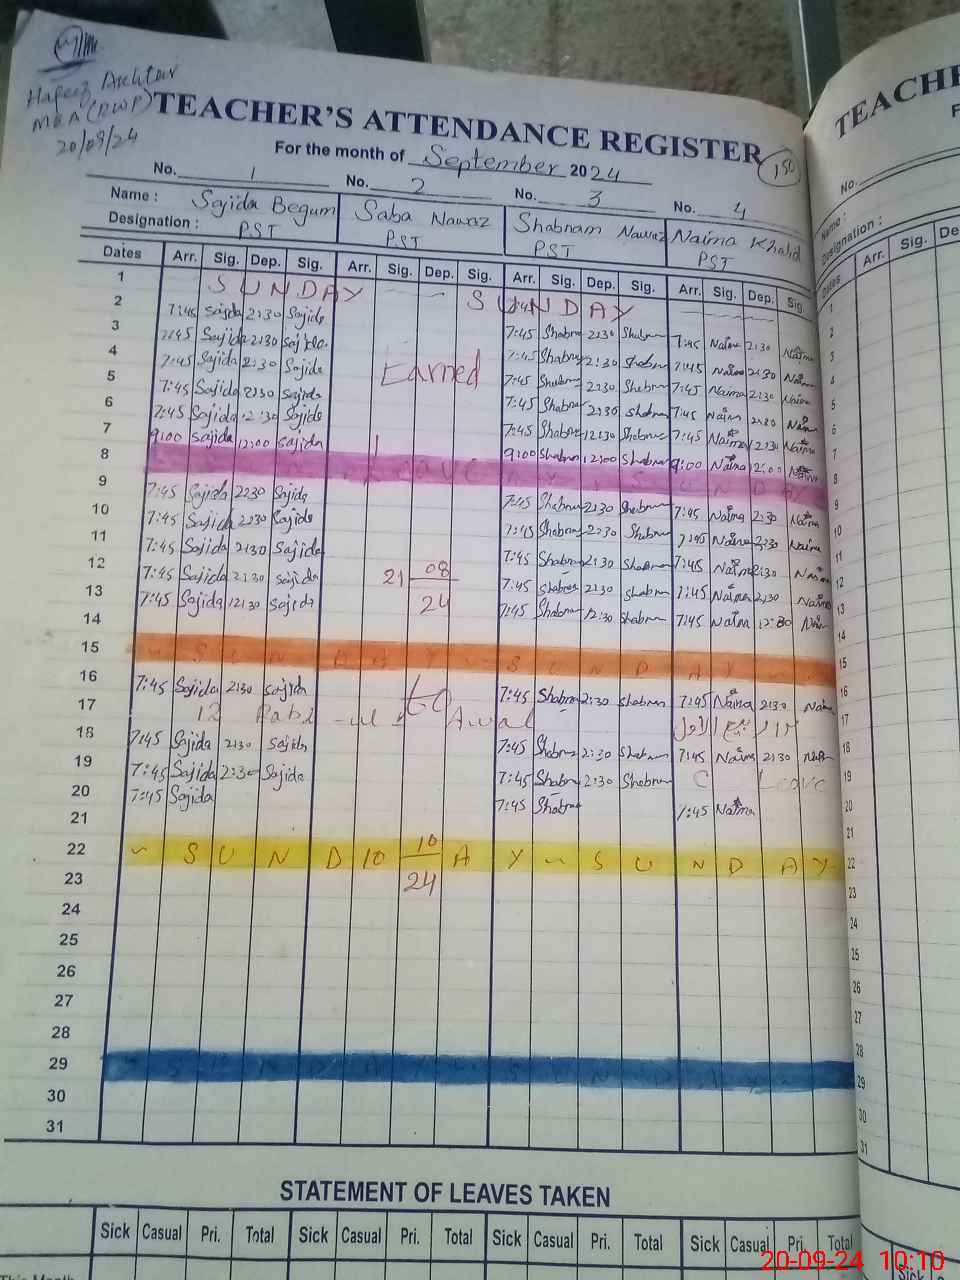 Hafeez Akhtar
MEA (RWP)
20/09/24
TEACHER'S ATTENDANCE REGISTER
For the month of September 2024
150
No. 1 No. 2 No. 3 No. 4
Name : Sajida Begum Saba Nawaz Shabnam Nawaz Naima Khalid
Designation : PST PST PST PST
Dates Arr. Sig. Dep. Sig. Arr. Sig. Dep. Sig. Arr. Sig. Dep. Sig. Arr. Sig. Dep. Sig.
1 SUNDAY SUNDAY
2 7:45 Sajida 2:30 Sajida 7:45 Shabnam 2:30 Shabnam 7:45 Naima 2:30 Naima
3 7:45 Sajida 2:30 Sajida 7:45 Shabnam 2:30 Shabnam 7:45 Naima 2:30 Naima
4 7:45 Sajida 2:30 Sajida Earned 7:45 Shabnam 2:30 Shabnam 7:45 Naima 2:30 Naima
5 7:45 Sajida 2:30 Sajida 7:45 Shabnam 2:30 Shabnam 7:45 Naima 2:30 Naima
6 7:45 Sajida 12:30 Sajida 7:45 Shabnam 12:30 Shabnam 7:45 Naima 12:30 Naima
7 9:00 Sajida 12:00 Sajida 9:00 Shabnam 12:00 Shabnam 9:00 Naima 12:00 Naima
8 Leave SUNDAY
9 7:45 Sajida 2:30 Sajida 7:45 Shabnam 2:30 Shabnam 7:45 Naima 2:30 Naima
10 7:45 Sajida 2:30 Sajida 7:45 Shabnam 2:30 Shabnam 7:45 Naima 2:30 Naima
11 7:45 Sajida 2:30 Sajida 7:45 Shabnam 2:30 Shabnam 7:45 Naima 2:30 Naima
12 7:45 Sajida 2:30 Sajida 21 08 24 7:45 Shabnam 2:30 Shabnam 7:45 Naima 2:30 Naima
13 7:45 Sajida 12:30 Sajida 7:45 Shabnam 12:30 Shabnam 7:45 Naima 12:30 Naima
14
15 SUNDAY SUNDAY
16 7:45 Sajida 2:30 Sajida to 7:45 Shabnam 2:30 Shabnam 7:45 Naima 2:30 Naima
17 12 Rabi-ul-Awal 12 ربیع الاول
18 7:45 Sajida 2:30 Sajida 7:45 Shabnam 2:30 Shabnam 7:45 Naima 2:30 Naima
19 7:45 Sajida 2:30 Sajida 7:45 Shabnam 2:30 Shabnam C Leave
20 7:45 Sajida 7:45 Shabnam 7:45 Naima
21
22 SUNDAY 10 10 24 SUNDAY
23
24
25
26
27
28
29 SUNDAY SUNDAY
30
31
STATEMENT OF LEAVES TAKEN
Sick Casual Pri. Total Sick Casual Pri. Total Sick Casual Pri. Total Sick Casual Pri. Total
This Month
TEACHE
No.
Name :
Designation :
Dates Arr. Sig. De
1
2
3
4
5
6
7
8
9
10
11
12
13
14
15
16
17
18
19
20
21
22
23
24
25
26
27
28
29
30
31
Sick
20-09-24 10:10